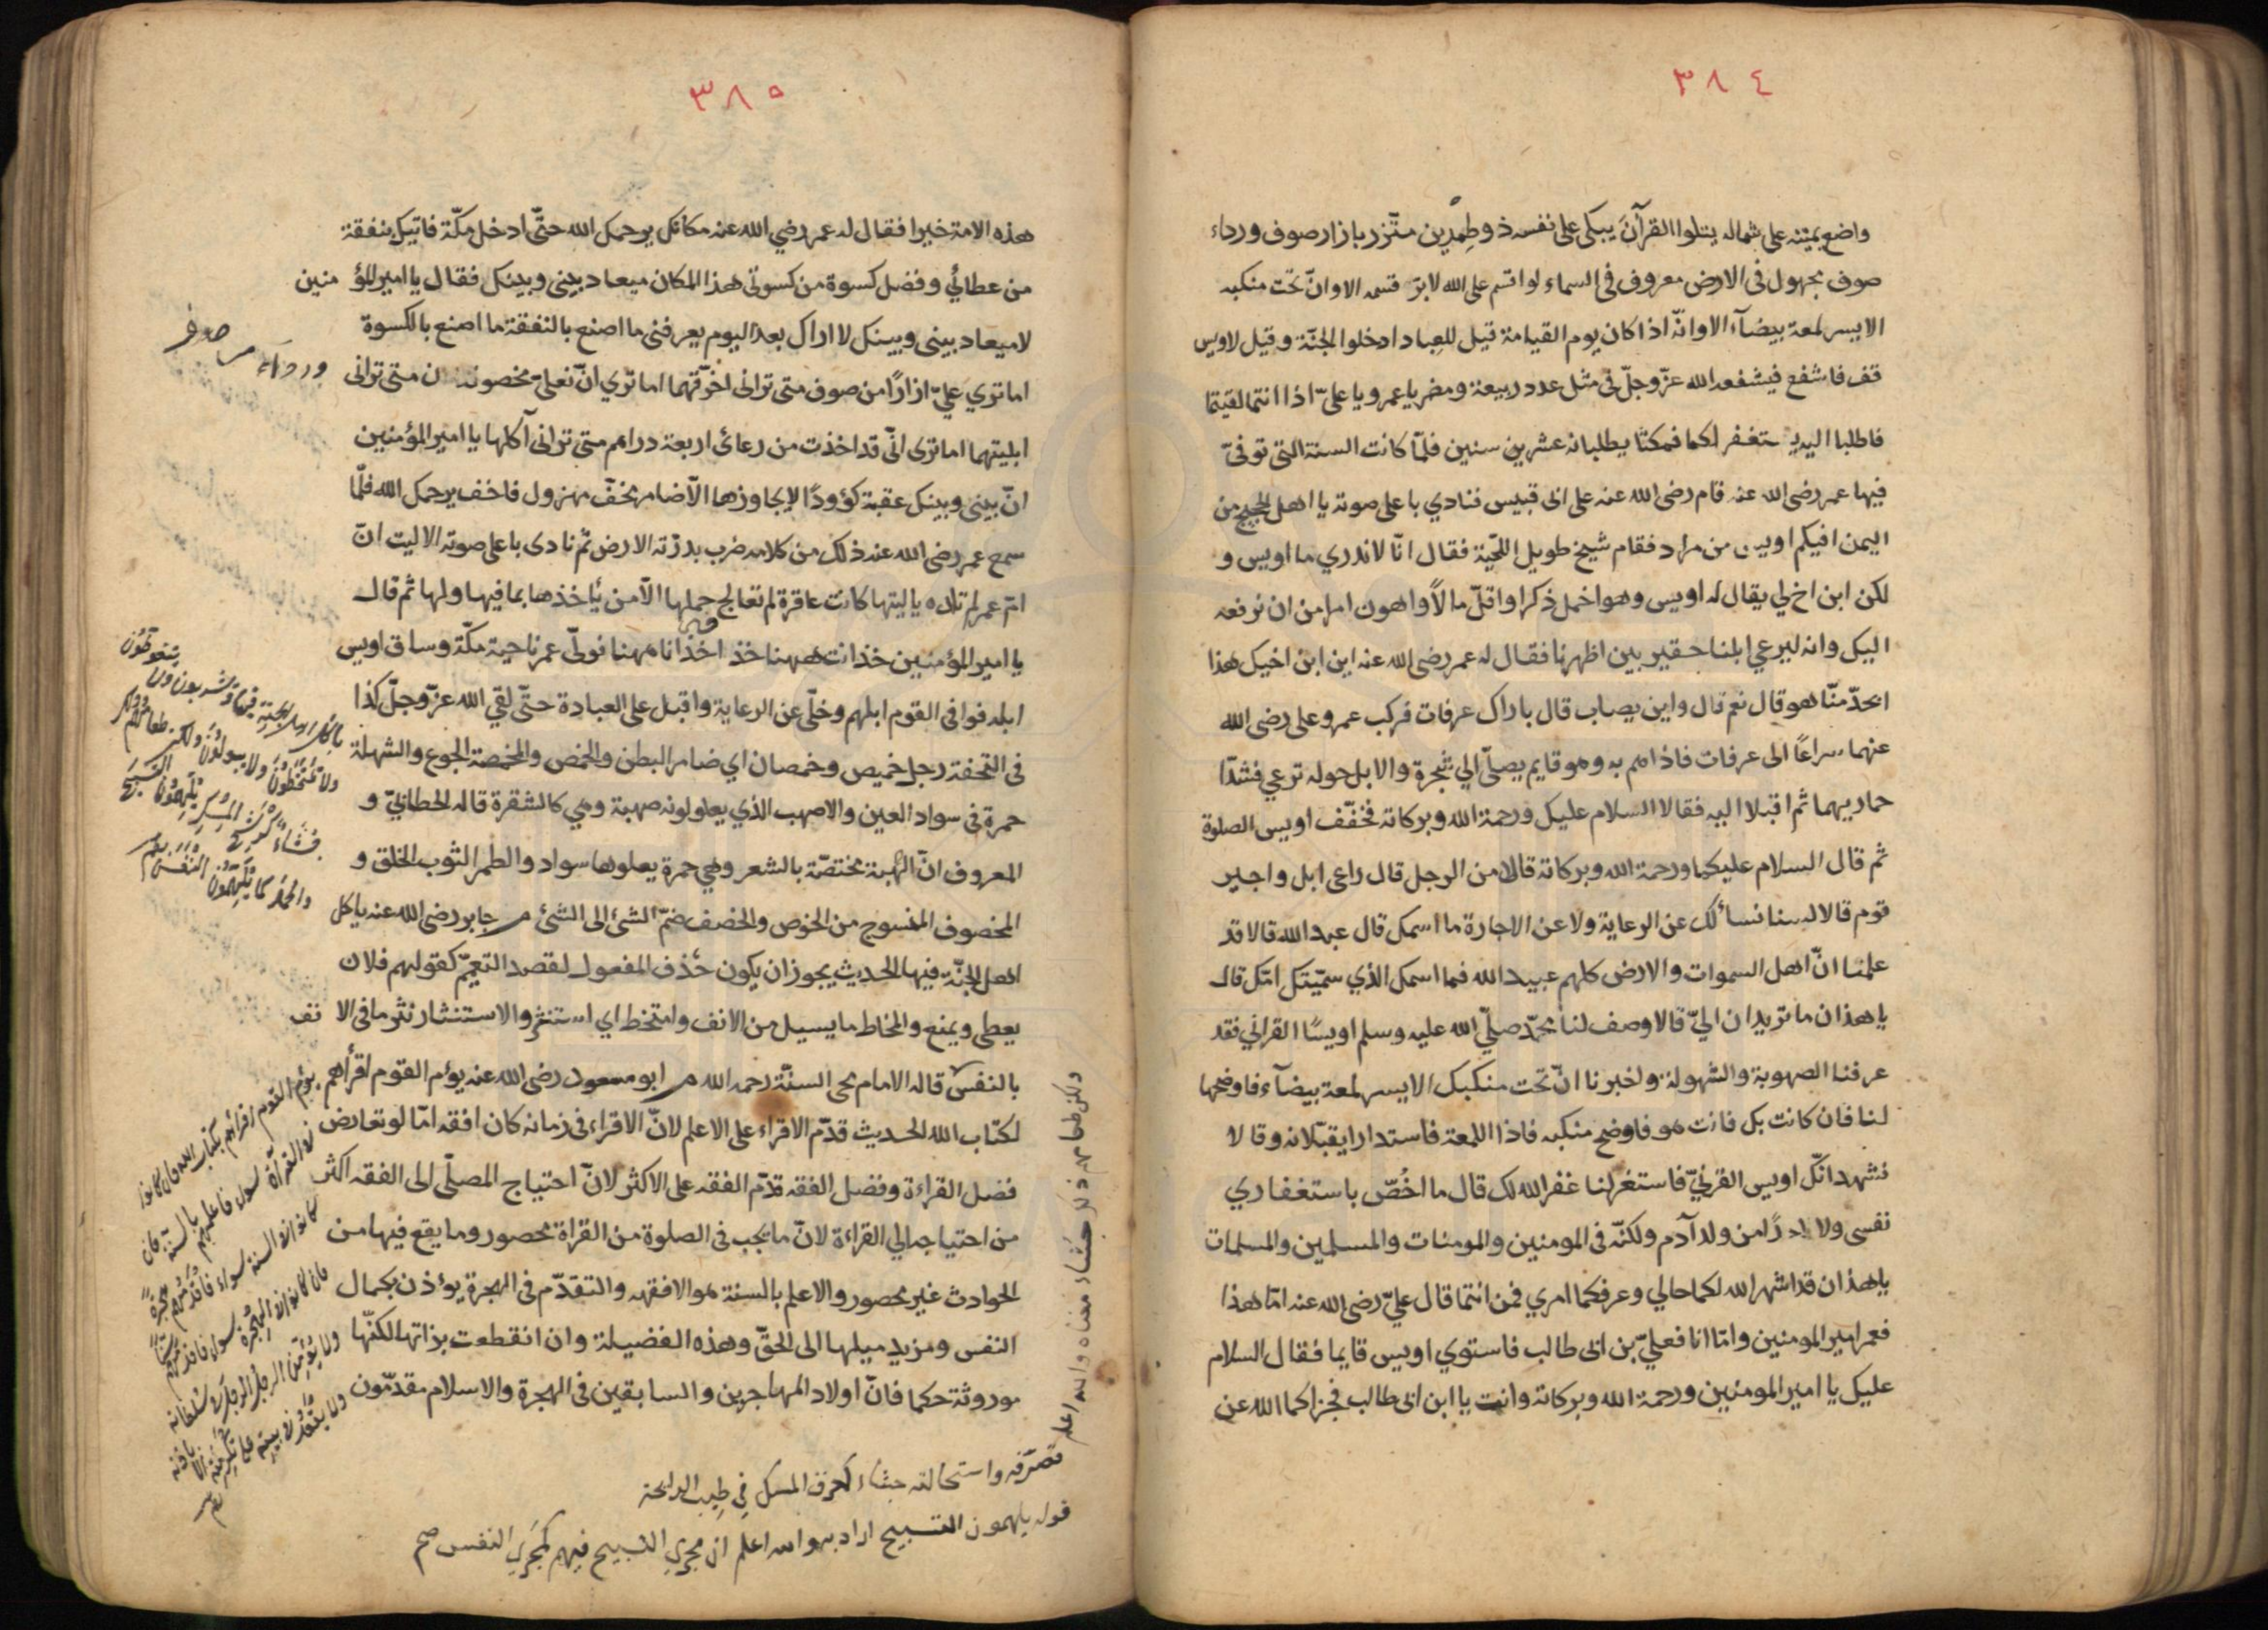 ٣٨٤
واضع يمينه على شماله يتلوا القرآن يبكى على نفسه ذو طمرين متّزر بازار صوف ورداء
صوف مجهول فى الارض معروف فى السماء لو اقسم على الله لابرّ قسمه الا وانّ تحت منكبه
الايسر لمعة بيضآء الا وانّه اذا كان يوم القيامة قيل للعباد ادخلوا الجنّة وقيل لاويس
قف فاشفع فيشفعه الله عزّ وجلّ فى مثل عدد ربيعة ومضر يا عمر ويا علىّ اذا انتما لقيتما
فاطلبا اليه يستغفر لكما فمكثا يطلبانه عشرين سنين فلمّا كانت السنة التى توفىّ
فيها عمر رضى الله عنه قام رضى الله عنه على ابى قبيس فنادي باعلى صوته يا اهل الحجيج من
اليمن افيكم اويس من مراد فقام شيخ طويل اللحّية فقال انّا لا ندري ما اويس و
لكن ابن اخ لي يقال له اويس وهو اخمل ذكرا واقلّ مالاً واهون امرا من ان نرفعه
اليك وانه ليرعي ابلنا حقير بين اظهرنا فقال له عمر رضى الله عنه اين ابن اخيك هذا
هو قال نعم قال واين يصاب قال باراك عرفات فركب عمر وعلى رضى الله
عنهما سراعًا الى عرفات فاذا هم به وهو قايم يصلّى الي شجرة والابل حوله ترعي فشدّا
حماريهما ثم اقبلا اليه فقالا السلام عليك ورحمة الله وبركاته فخفّف اويس الصلوة
ثم قال السلام عليكما ورحمة الله وبركاته قالا من الرجل قال راعى ابل واجير
قوم قالا لسنا نسألك عن الرعاية ولا عن الاجارة ما اسمك قال عبد الله قالا قد
علمنا انّ اهل السموات والارض كلهم عبيد الله فما اسمك الذي سمّيتك امّك قال
يا هذان ما تريدان اليّ قالا وصف لنا محمّد صلّي الله عليه وسلم اويسًا القرني فقد
عرفنا الصهوبة والشهولة واخبرنا انّ تحت منكبك الايسر لمعة بيضآء فاوضحها
لنا فان كانت بك فانت هو فاوضح منكبه فاذا اللمعة فاستدارا يقبّلانه وقالا
نشهد انّك اويس القرنيّ فاستغفر لنا غفر الله لك قال ما اخُصّ باستغفاري
نفسى ولا احدًا من ولد آدم ولكنّه فى المومنين والمومنات والمسلمين والمسلمات
يا هذان قد اشهر الله لكما حالي وعرفكما امري فمن انتما قال عليّ رضى الله عنه امّا هذا
فعمر امير المومنين وامّا انا فعليّ بن ابى طالب فاستوي اويس قايما فقال السلام
عليك يا امير المومنين ورحمة الله وبركاته وانت يا ابن ابى طالب فجزاكما الله عن
٣٨٥
هذه الامة خيرا فقال له عمر رضي الله عنه مكانك يرحمك الله حتّى ادخل مكّة فاتيك بنفقة
من عطائي وفضل كسوة من كسوتى هذا المكان ميعاد بينى وبينك فقال يا امير المؤمنين
لا ميعاد بينى وبينك لا اراك بعد اليوم يعرفنى ما اصنع بالنفقة ما اصنع بالكسوة
اما تري عليّ ازارًا من صوف متى ترانى اخرّقهما اما تري انّ نعليّ مخصوفتان متى ترانى
ورداء من صوف
ابليتهما اما ترى انّى قد اخذت من رعائ اربعة دراهم متى ترانى آكلها يا امير المؤمنين
انّ بينى وبينك عقبة كؤودًا لا يجاوزها الّا ضامر مخفّ مهزول فاخف يرحمك الله فلمّا
سمع عمر رضى الله عنه ذلك من كلامه ضرب بدرّته الارض ثم نادى باعلى صوته الا ليت انّ
امّ عمر لم تلده يا ليتها كانت عاقرة لم تعالج حملها الّا من يأخذها بما فيها ولها ثم قال
يا امير المؤمنين خذ انت ههنا خذ اخذ انا ههنا فولّى عمر ناحية مكّة وساق اويس
ابله فوافى القوم ابلهم وخلّى عن الرعاية واقبل على العبادة حتّى لقي الله عزّ وجلّ كذا
فى التحفة رجل خميص وخمصان اي ضامر البطن والخمص والمخمصة الجوع والشهلة
حمرة فى سواد العين والاصهب الذي يعلو لونه صهبة وهي كالشقرة قاله الخطابيّ و
المعروف انّ الصهبة مختصّة بالشعر وهي حمرة يعلوها سواد والطمر الثوب الخلق و
المخصوف المنسوج من الخوص والخصف ضمّ الشئ الى الشئ م جابر رضى الله عنه ياكل
اهل الجنّة فيها الحديث يجوز ان يكون حُذف المفعول لقصد التعميّم كقولهم فلان
يعطى ويمنع والمخاط ما يسيل من الانف وامتخط اي استنثر والاستنثار نثر ما فى الانف
بالنفس قاله الامام محى السنّة رحمه الله م ابو مسعود رضى الله عنه يؤم القوم اقرأهم
لكتاب الله الحديث قدّم الاقراء على الاعلم لانّ الاقراء فى زمانه كان افقه امّا لو تعارض
فضل القراءة وفضل الفقه قدّم الفقه على الاكثر لانّ احتياج المصلّى الى الفقه اكثر
من احتياجه الي القراءة لانّ ما يجب فى الصلوة من القراة محصور وما يقع فيها من
الحوادث غير محصور والاعلم بالسنة هو الافقه والتقدّم فى الهجرة يؤذن بكمال
النفس ومزيد ميلها الى الحقّ وهذه الفضيلة وان انقطعت بذاتها لكنّها
موروثة حكما فانّ اولاد المهاجرين والسابقين فى الهجرة والاسلام مقدّمون
ياكل اهل الجنة فيها ويشربون ولا يتغوطون
ولا يمتخطون ولا يبولون ولكن طعامهم ذلك
جشاء كرشح المسك يلهمون التسبيح
والحمد كما يلهمون النفس
يؤم القوم اقرأهم لكتاب الله فان كانوا
فى القراة سواء فاعلمهم بالسنة فان
كانوا فى السنة سواء فاقدمهم هجرة
فان كانوا فى الهجرة سواء فاقدمهم
ولا يؤمن الرجل الرجل فى سلطانه
ولا يقعد فى بيته على تكرمته الا باذنه
ولكن طعامهم ذلك جشاء معناه والله اعلم
تصرّفه واستحالته جشاء كعرف المسك فى طيب الرايحة
قوله يلهمون التسبيح اراد به والله اعلم ان مجري التسبيح فيهم كمجري النفس صح